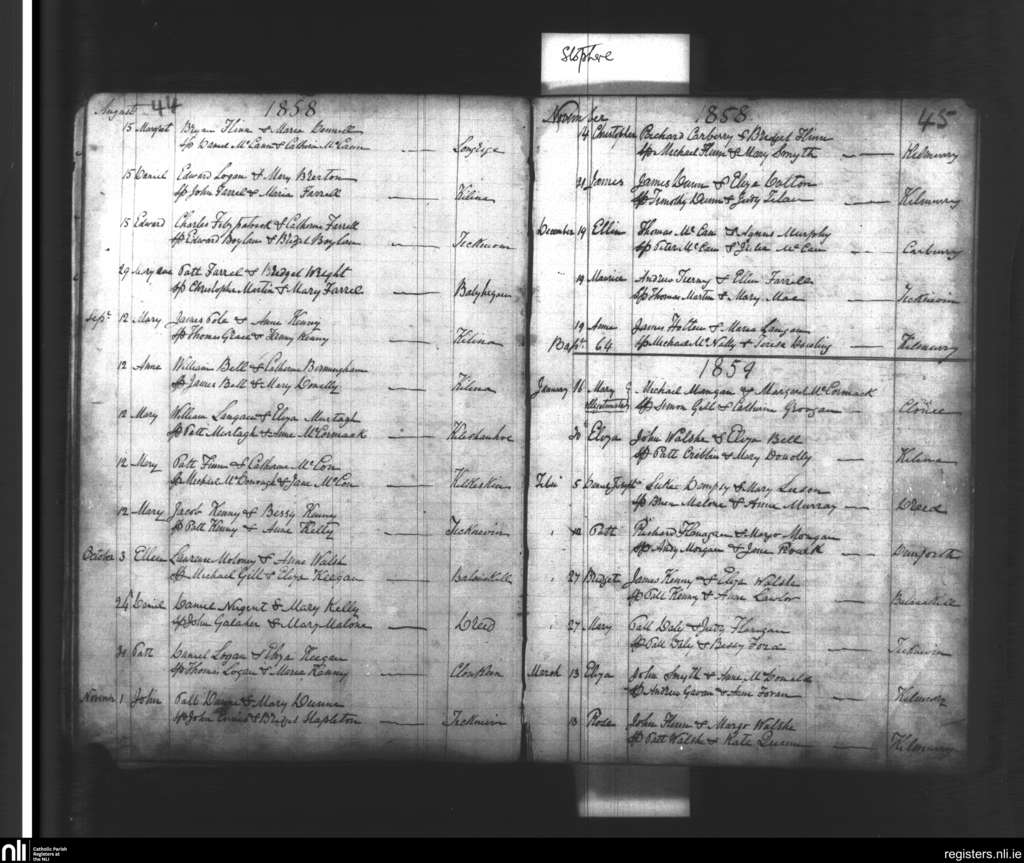 August 44 1858
15 Margret Bryan Flinn & Maria Dennett
Sp Daniel McCann & Catherin McCann Longrige
15 Daniel Edward Logan & Mary Brerton
Sp John Farrel & Maria Farrell Kilina
15 Edward Charles Fitzpatrick & Catherine Farrell
Sp Edward Boylan & Bridget Boylan Ticknevin
29 Mary Anne Patt Farrel & Bridget Wright
Sp Christopher Martin & Mary Farrel
Sept 12 Mary James Pole & Anne Kenny
Sp Thomas Grace & Kenny Kilina
12 Anne William Bell & Catherine Birmingham
Sp James Bell & Mary Donolly Kilina
12 Mary William Langan & Eliza Murtagh
Sp Patt Murtagh & Anne McCormack
12 Mary Patt Finn & Catherine McCon
Sp Michael McDonough & Jane McCon Kilkeskin
12 Mary Jacob Kenny & Bessy Kenny
Sp Patt Kenny & Anne Kelly Ticknevin
October 3 Ellen Laurence Molony & Anne Walsh
Sp Michael Gill & Eliza Keegan
24 Daniel Daniel Nugent & Mary Kelly
Sp John Galaher & Mary Malone Dreed
30 Patt Daniel Logan & Eliza Keegan
Sp Thomas Logan & Maria Kenny
Novemr 1 John Patt Dunne & Mary Dunne
Sp John & Bridget Stapleton Ticknevin
November 1858 45
14 Christopher Richard Carberry & Bridget Flinn
Sp Michael Flinn & Mary Smyth Kilmurry
21 James James Dunn & Eliza Cotton
Sp Timothy Dunn & Judy Kilmurry
December 19 Ellin Thomas McCann & Agnes Murphy
Sp Peter McCann & Julia McCann Carbury
19 Maurice Andrew Tierny & Ellen Farrell
Sp Thomas Martin & Mary Mae Ticknevin
19 Anne James Holten & Maria Langan
Bapt. 64 Sp Michael McNally & Teresa Dowling Kilmurry
1859
January 16 Mary Michael Mangan & Margaret McCormack
Illegitimate Sp Simon Gill & Catherine Groogan
30 Eliza John Walshe & Eliza Bell
Sp Patt Cribbin & Mary Donolly Kilina
Feb 5 Daniel Joseph Luke Dempsy & Mary
Sp Brien Malone & Anne Murray Dreed
12 Patt Richard Flanagan & Margo Mongan
Sp Andy Morgan & Jane Rourk
27 Bridget James Kenny & Eliza Walshe
Sp Patt Kenny & Anne Lawlor
27 Mary Patt Daly & Judy Flanigan
Sp Patt Daly & Bessy Ford Ticknevin
March 13 Eliza John Smyth & Anne McDonald
Sp Andrew Gavan & Jane Foran Kilmurry
13 Rose John Flinn & Margo Walshe
Sp Patt Walshe & Kate Quinn Kilmurry
nli
Catholic Parish
Registers at
the NLI
registers.nli.ie